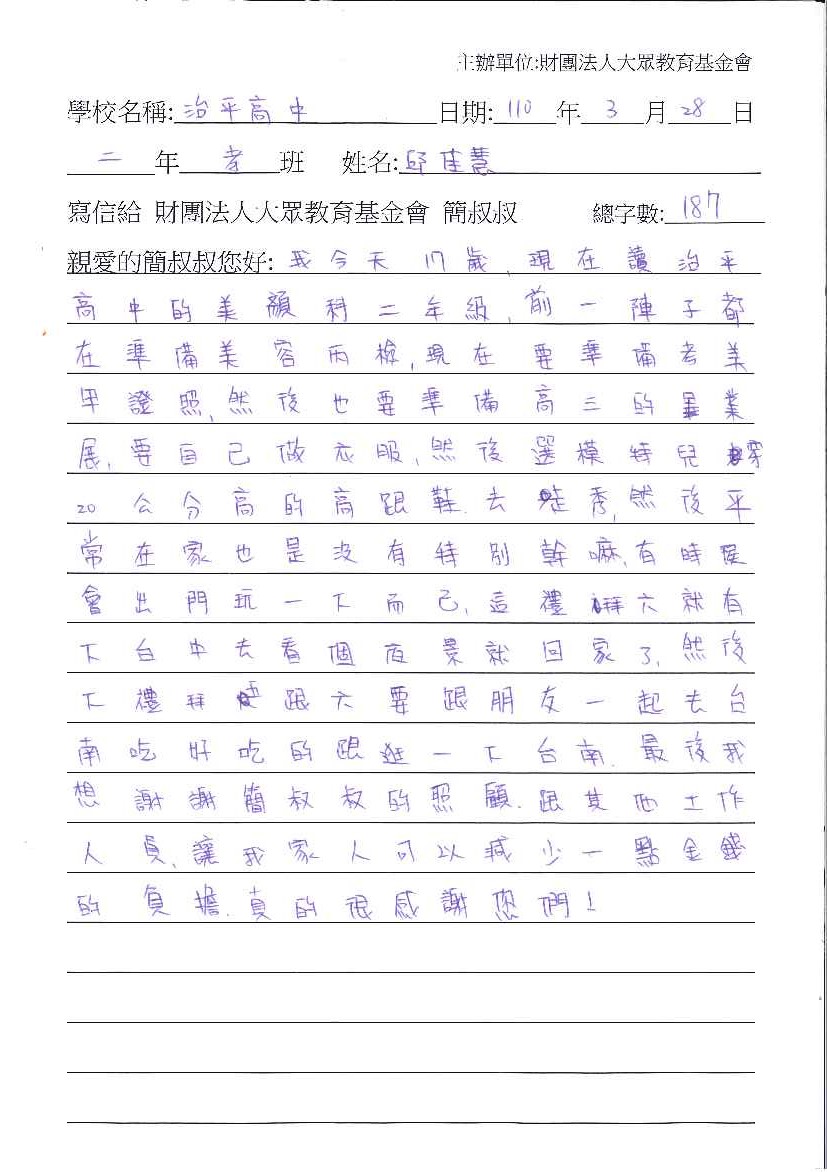 主辦單位:財團法人大眾教育基金會
學校名稱: 治平高中 日期: 110 年 3 月 28 日
二 年 孝 班 姓名: 邱佳慧
寫信給 財團法人大眾教育基金會 簡叔叔 總字數: 187
親愛的簡叔叔您好: 我今天17歲,現在讀治平
高中的美顏科二年級,前一陣子都
在準備美容丙檢,現在要準備考美
甲證照,然後也要準備高三的畢業
展,要自己做衣服,然後選模特兒穿
20公分高的高跟鞋.去走秀,然後平
常在家也是沒有特別幹嘛,有時侯
會出門玩一下而已,這禮拜六就有
下台中去看個夜景就回家了,然後
下禮拜五跟六要跟朋友一起去台
南吃好吃的跟逛一下台南.最後我
想謝謝簡叔叔的照顧.跟其他工作
人員,讓我家人可以減少一點金錢
的負擔.真的很感謝您們!